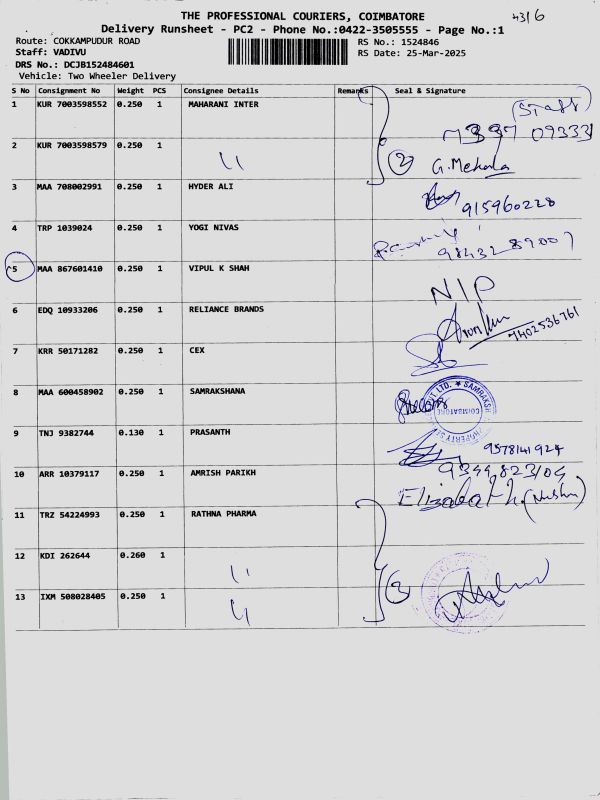 THE PROFESSIONAL COURIERS, COIMBATORE
43/6
Delivery Runsheet - PC2 - Phone No.:0422-3505555 - Page No.:1
Route: COKKAMPUDUR ROAD
RS No.: 1524846
Staff: VADIVU
RS Date: 25-Mar-2025
DRS No.: DCJB152484601
Vehicle: Two Wheeler Delivery
S No Consignment No Weight PCS Consignee Details Remarks Seal & Signature
1 KUR 7003598552 0.250 1 MAHARANI INTER
(Staff)
7397 09333
2 KUR 7003598579 0.250 1 〃
2 G.Mekala
3 MAA 708002991 0.250 1 HYDER ALI
915960228
4 TRP 1039024 0.250 1 YOGI NIVAS
98432 89007
5 MAA 867601410 0.250 1 VIPUL K SHAH
NIP
6 EDQ 10933206 0.250 1 RELIANCE BRANDS
7402536761
7 KRR 50171282 0.250 1 CEX
8 MAA 600458902 0.250 1 SAMRAKSHANA
LTD. ★ SAMRAKSH
COIMBATORE
9 TNJ 9382744 0.130 1 PRASANTH
9578141924
10 ARR 10379117 0.250 1 AMRISH PARIKH
9344823109
Elizabath.
11 TRZ 54224993 0.250 1 RATHNA PHARMA
12 KDI 262644 0.260 1 〃
3
13 IXM 508028405 0.250 1 〃